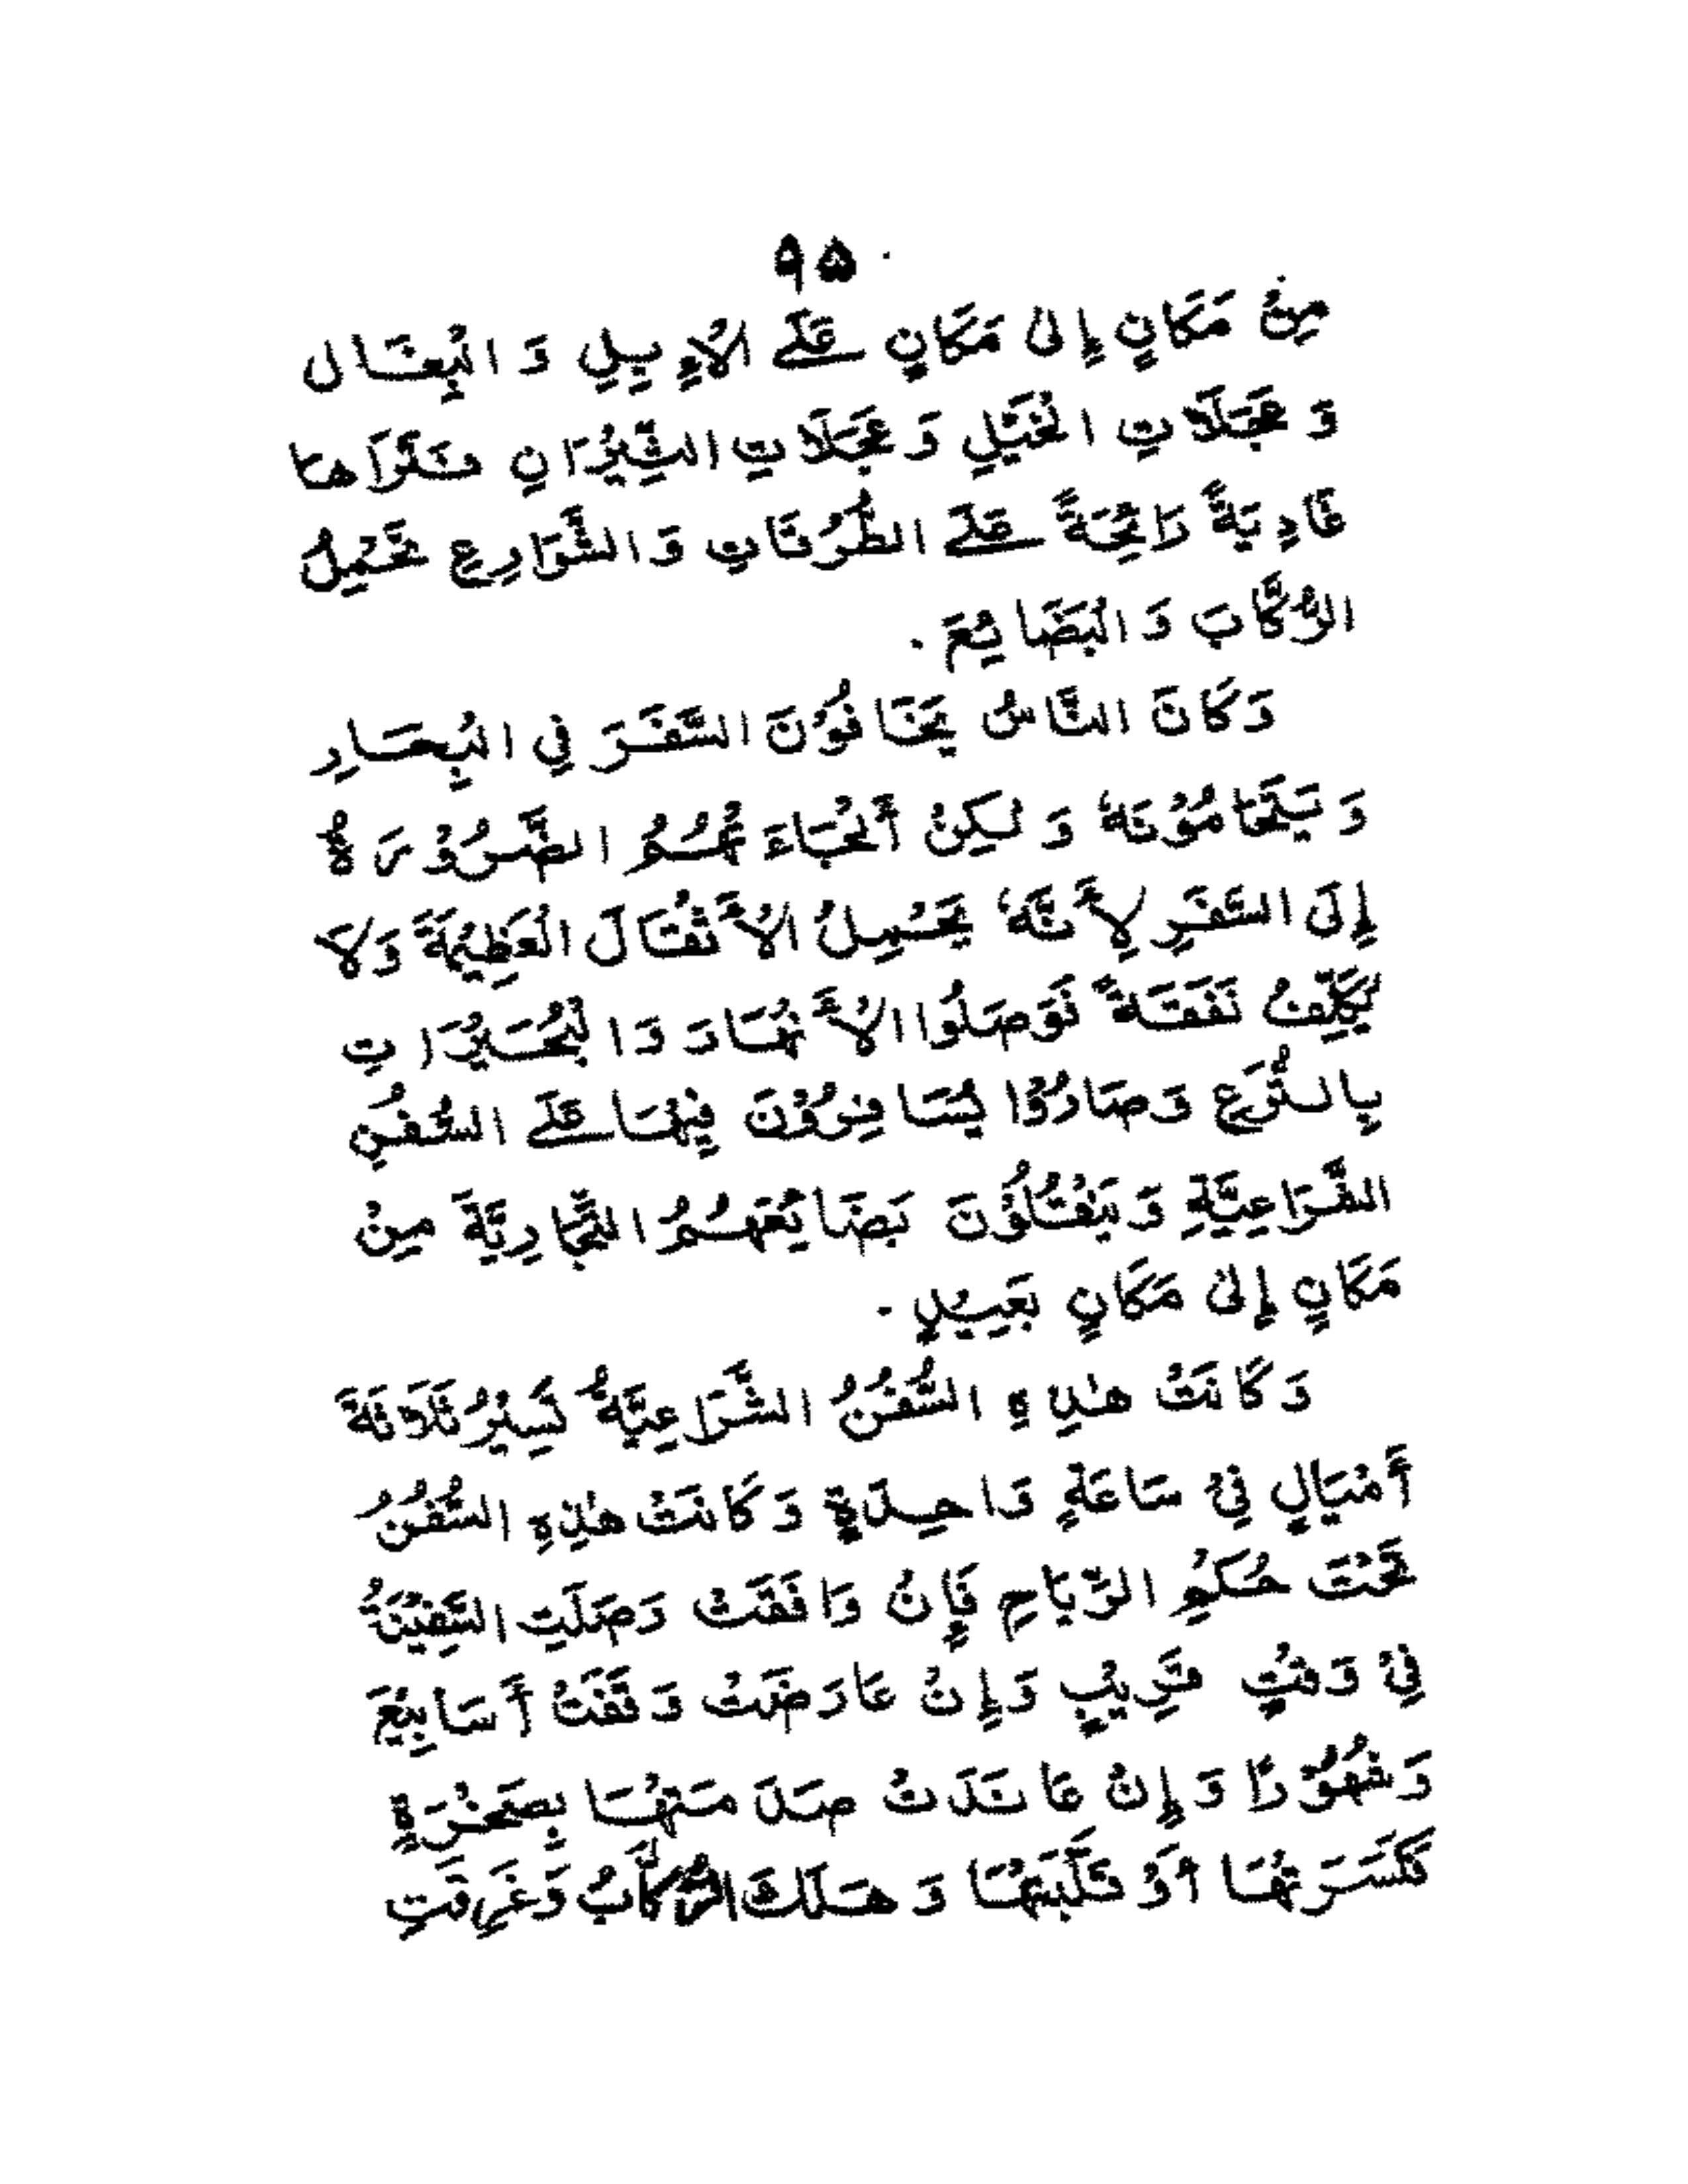 ۹۵
مِنْ مَكَانٍ إِلىٰ مَكَانٍ عَلَى الْإِبِلِ وَ الْبِغَال
وَ عَجَلَاتِ الْخَيْلِ وَ عَجَلَاتِ الثِّيْرَانِ فَتَرَاهَا
غَادِيَةً رَائِحَةً عَلَى الطُّرُقَاتِ وَ الشَّوَارِعِ تَحْمِلُ
الرُّكَّابَ وَ الْبَضَائِعَ .
وَ كَانَ النَّاسُ يَخَافُوْنَ السَّفَرَ فِي الْبِحَارِ
وَ يَتَحَامُوْنَهُ وَ لٰكِنْ أَلْجَاءَتْهُمُ الضَّرُوْرَةُ
إِلَى السَّفَرِ لِأَنَّهُ يَحْمِلُ الْأَثْقَالَ الْعَظِيْمَةَ وَلَا
يُكَلِّفُ نَفَقَةً فَوَصَلُوا الْأَنْهَارَ وَ الْبُحَيْرَاتِ
بِالتُّرَعِ وَ صَارُوْا يُسَافِرُوْنَ فِيْهَا عَلَى السُّفُنِ
الشِّرَاعِيَّةِ وَ يَنْقُلُوْنَ بَضَائِعَهُمُ التِّجَارِيَّةَ مِنْ
مَكَانٍ إِلىٰ مَكَانٍ بَعِيْدٍ .
وَ كَانَتْ هٰذِهِ السُّفُنُ الشِّرَاعِيَّةُ تَسِيْرُ ثَلَاثَةَ
أَمْيَالٍ فِيْ سَاعَةٍ وَاحِدَةٍ وَ كَانَتْ هٰذِهِ السُّفُنُ
تَحْتَ حُكْمِ الرِّيَاحِ فَإِنْ وَافَقَتْ وَصَلَتِ السَّفِيْنَةُ
فِيْ وَقْتٍ قَرِيْبٍ وَ إِنْ عَارَضَتْ وَقَفَتْ أَسَابِيْعَ
وَ شُهُوْرًا وَ إِنْ عَانَدَتْ صَدَمَتْهَا بِصَخْرَةٍ
فَكَسَرَتْهَا أَوْ قَلَّبَتْهَا وَ هَلَكَ الرُّكَّابُ وَ غَرِقَتِ